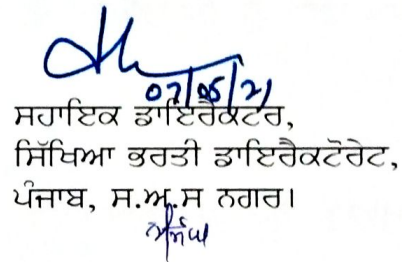 07/05/21
ਸਹਾਇਕ ਡਾਇਰੈਕਟਰ,
ਸਿੱਖਿਆ ਭਰਤੀ ਡਾਇਰੈਕਟੋਰੇਟ,
ਪੰਜਾਬ, ਸ.ਅ.ਸ ਨਗਰ।